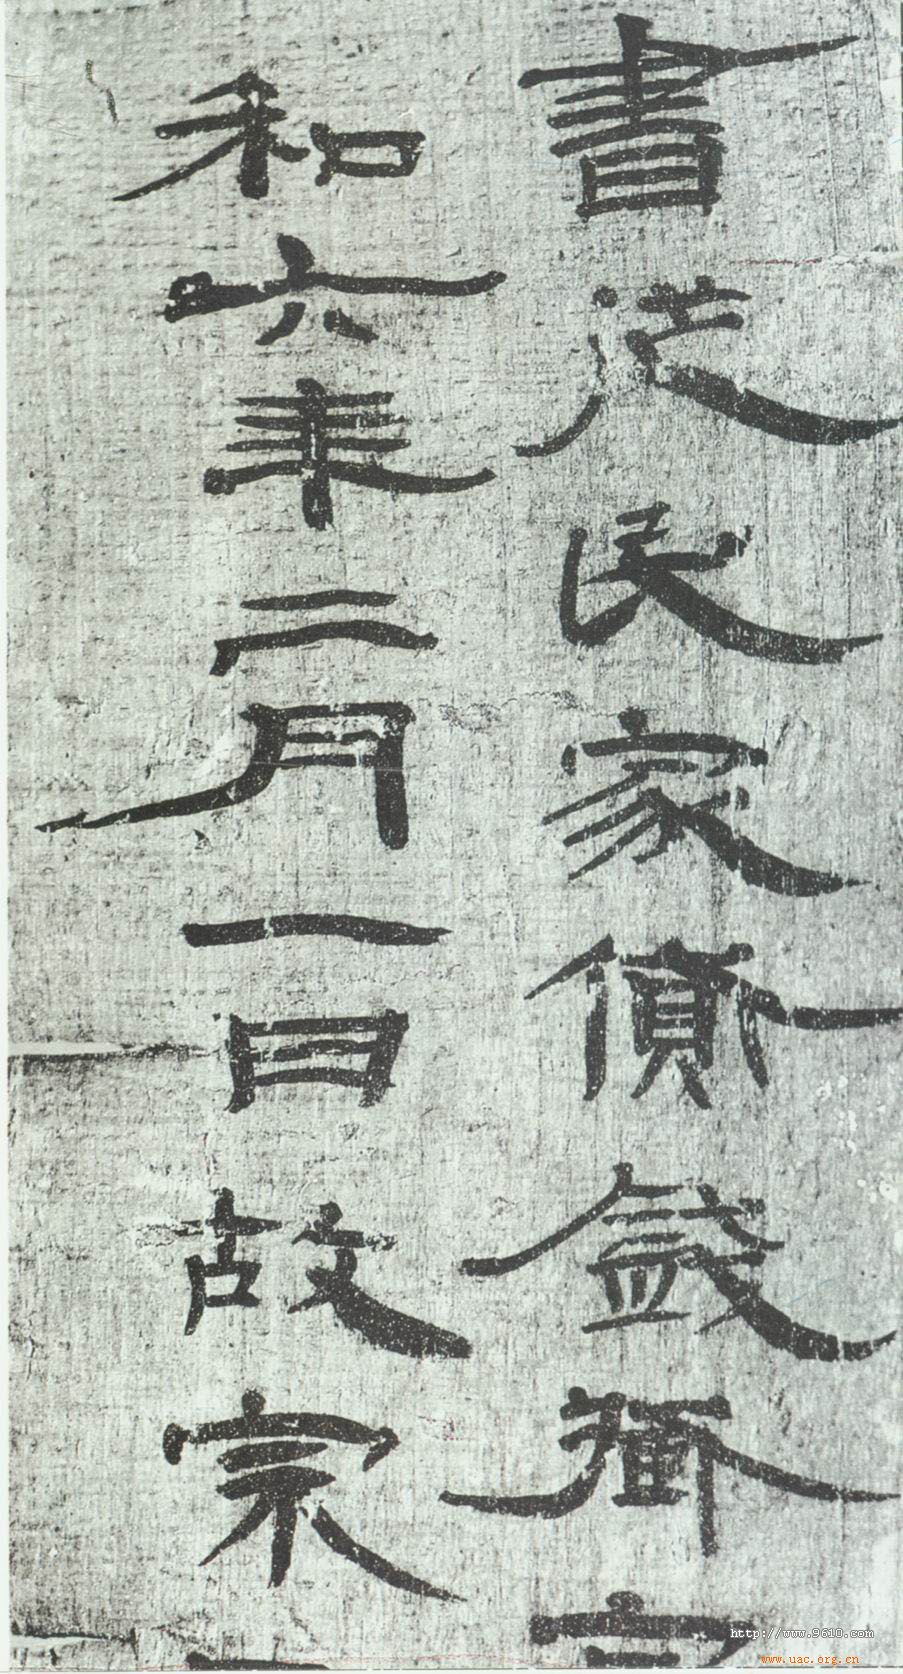 書從民家錢
和六年二月一日故宗
http://www.9610.com
www.uac.org.cn